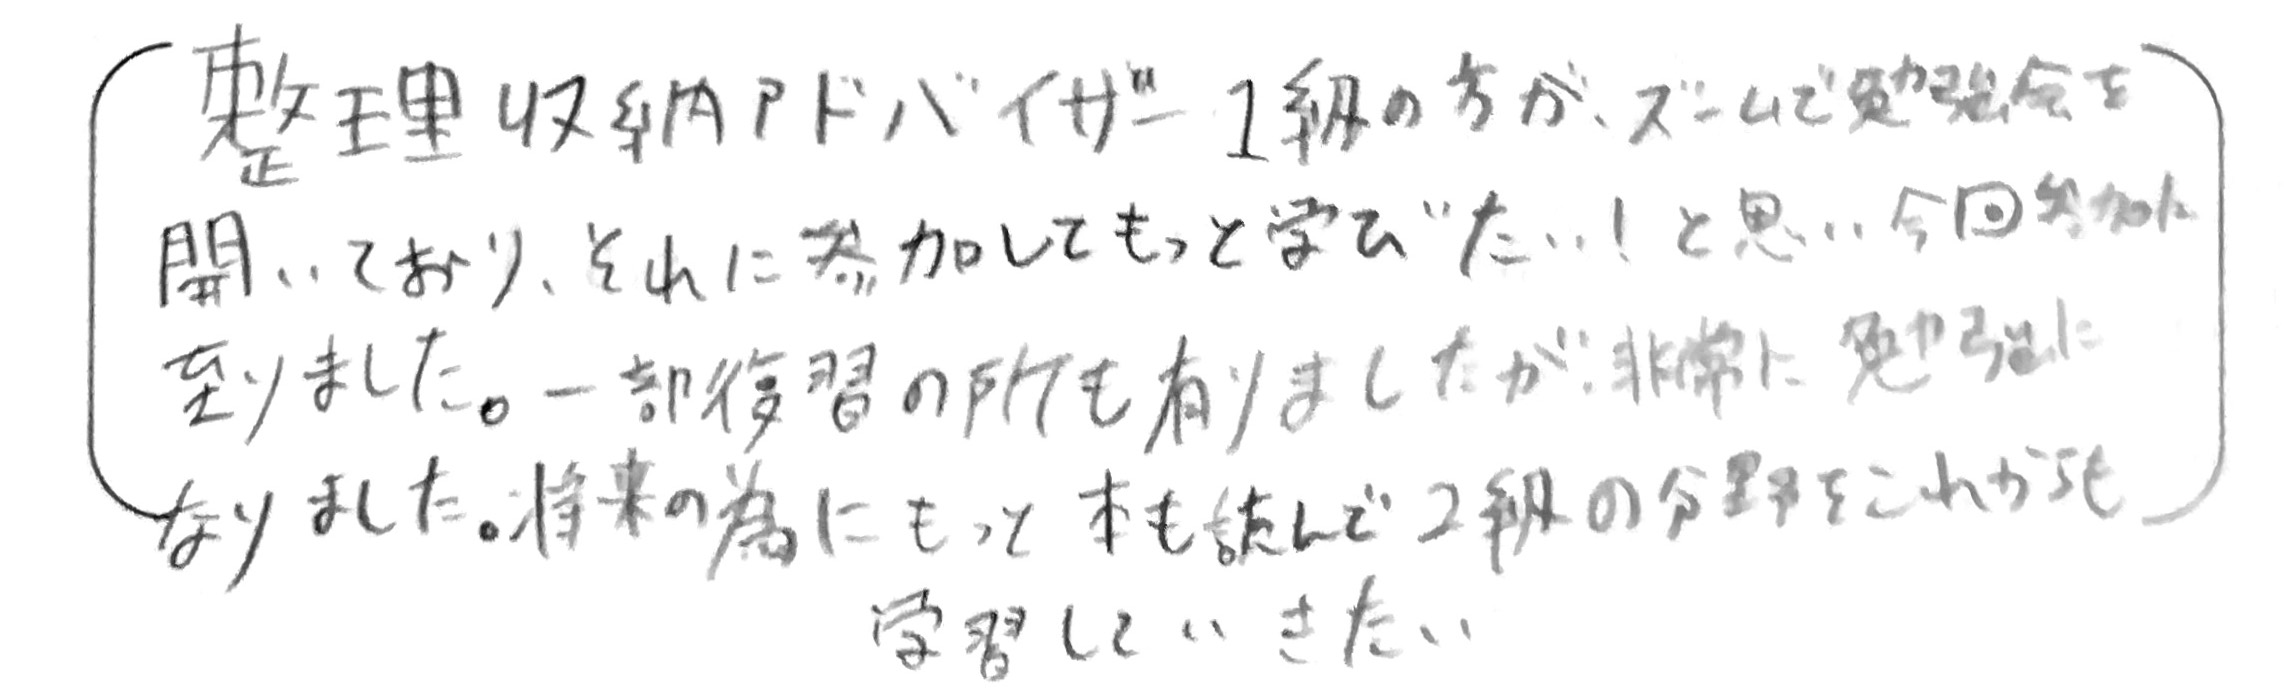 整理収納アドバイザー1級の方が、ズームで勉強会を
開いており、それに参加してもっと学びたい!と思い今回参加に
至りました。一部復習の所も有りましたが、非常に勉強に
なりました。将来の為にもっと本も読んで2級の分野をこれからも
学習していきたい